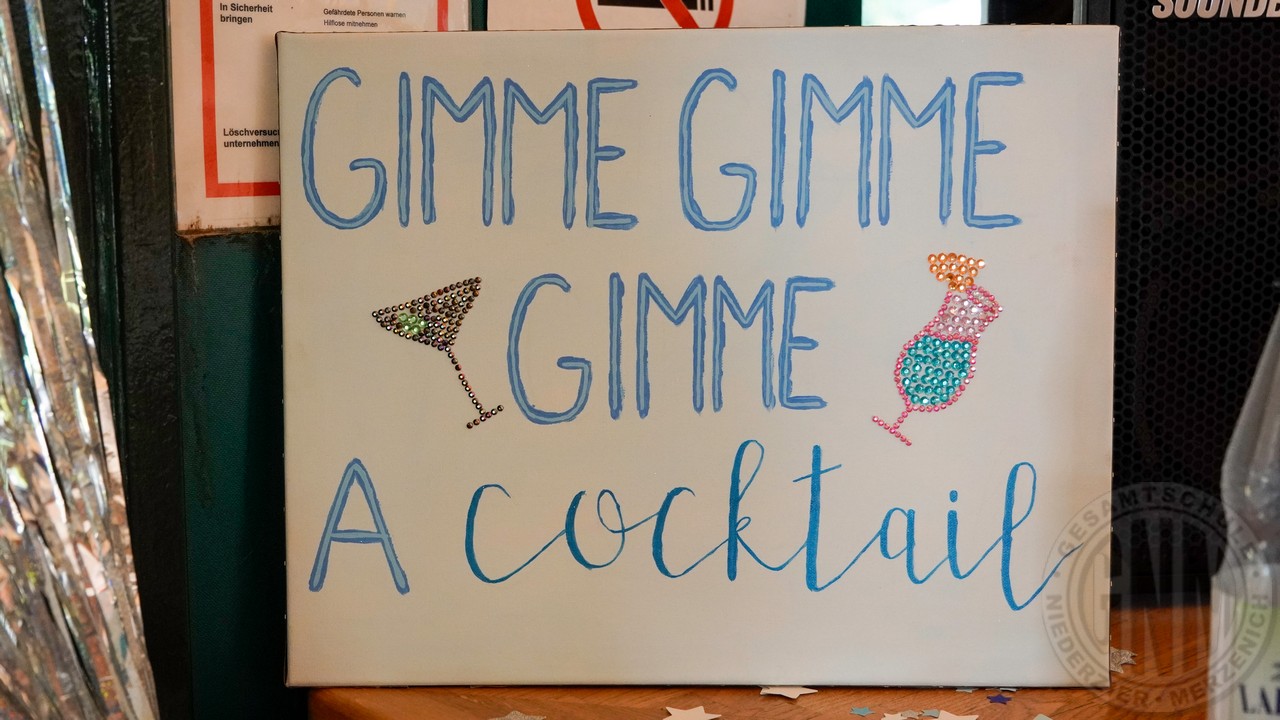 In Sicherheit
bringen
Gefährdete Personen warnen
Hilflose mitnehmen
Löschversuch
unternehmen
GIMME GIMME
GIMME
A cocktail
GESAMTSCHULE
NIEDERZIER · MERZENICH
GNM